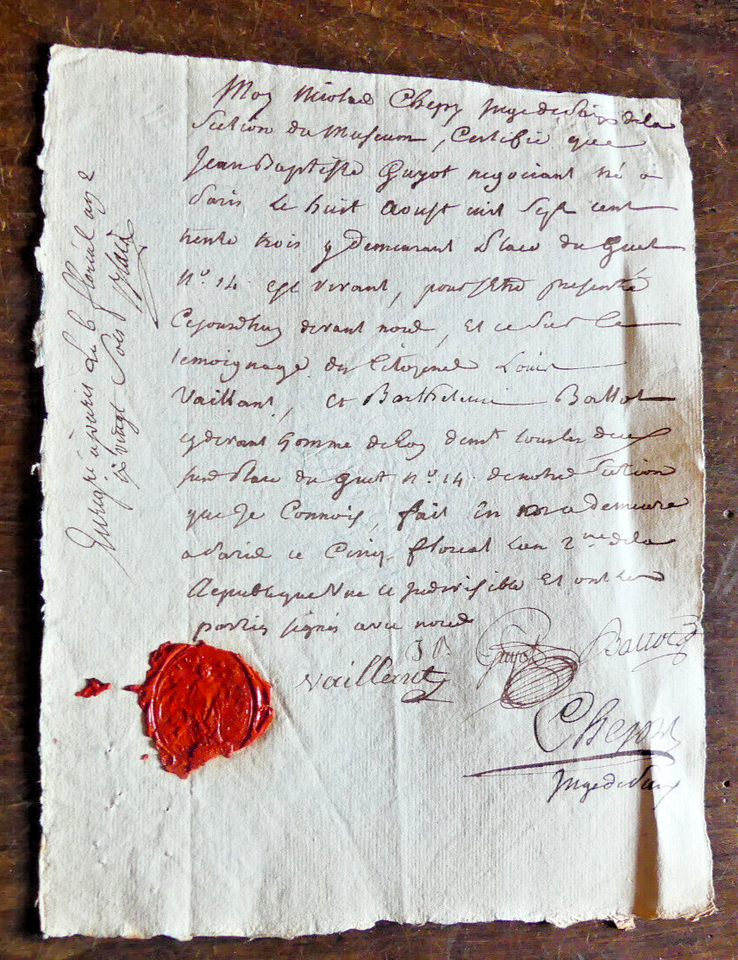 Moy Nicolas Chepy Juge de Paix de la
Section du Museum, Certifie que
Jean Baptiste Guyot negociant né a
Paris le huit Aoust mil Sept cent
trente trois y demeurant Place du Guet
N.o 14 est vivant, pour s'Etre presenté
Cejourdhuy devant nous, Et ce sur le
temoignage des Citoyens Louis
Vaillant, et Barthelemi Ballot
cydevant homme de loy demt tous les deux
susd place du Guet N.o 14 de notre Section
que Je Connois, fait En notre demeure
a Paris ce Cinq floreal lan 2me de la
Republique Une et indivisible Et ont les
parties signés avec nous
Vaillant J B. Guyot Ballot
Chepy
Juge de Paix
Enregré à paris le 6 floréal an 2
vingt Sols